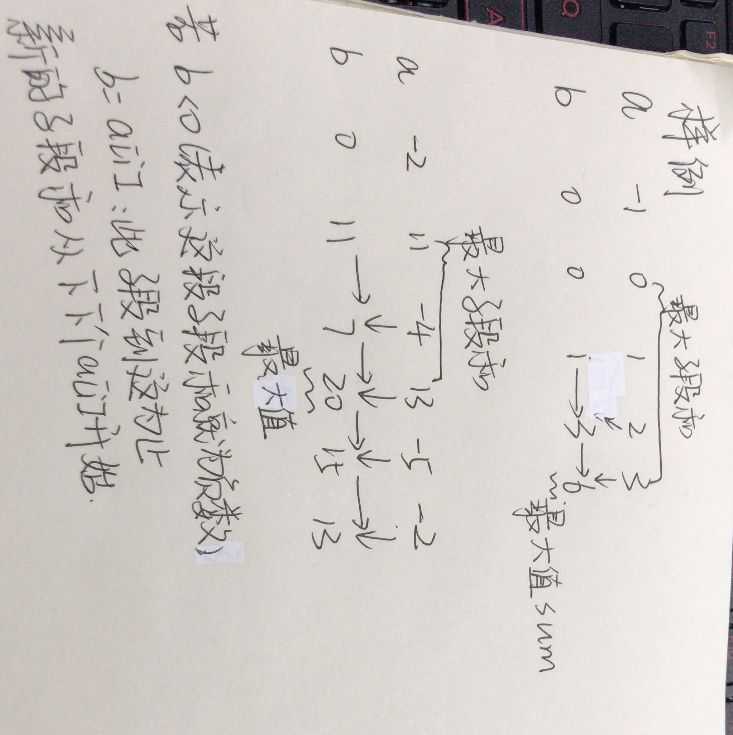 样例
最大子段和
a -1 0 1 2 3
b 0 0 1→3→6
最大值sum
最大子段和
a -2 11 -4 13 -5 -2
b 0 11→7→20→15→13
最大值
若b<0(表示这段子段和就为负数)
b=a[i]:此子段到这为止
新的子段和从下下个a[i]开始.
F2
Q
A